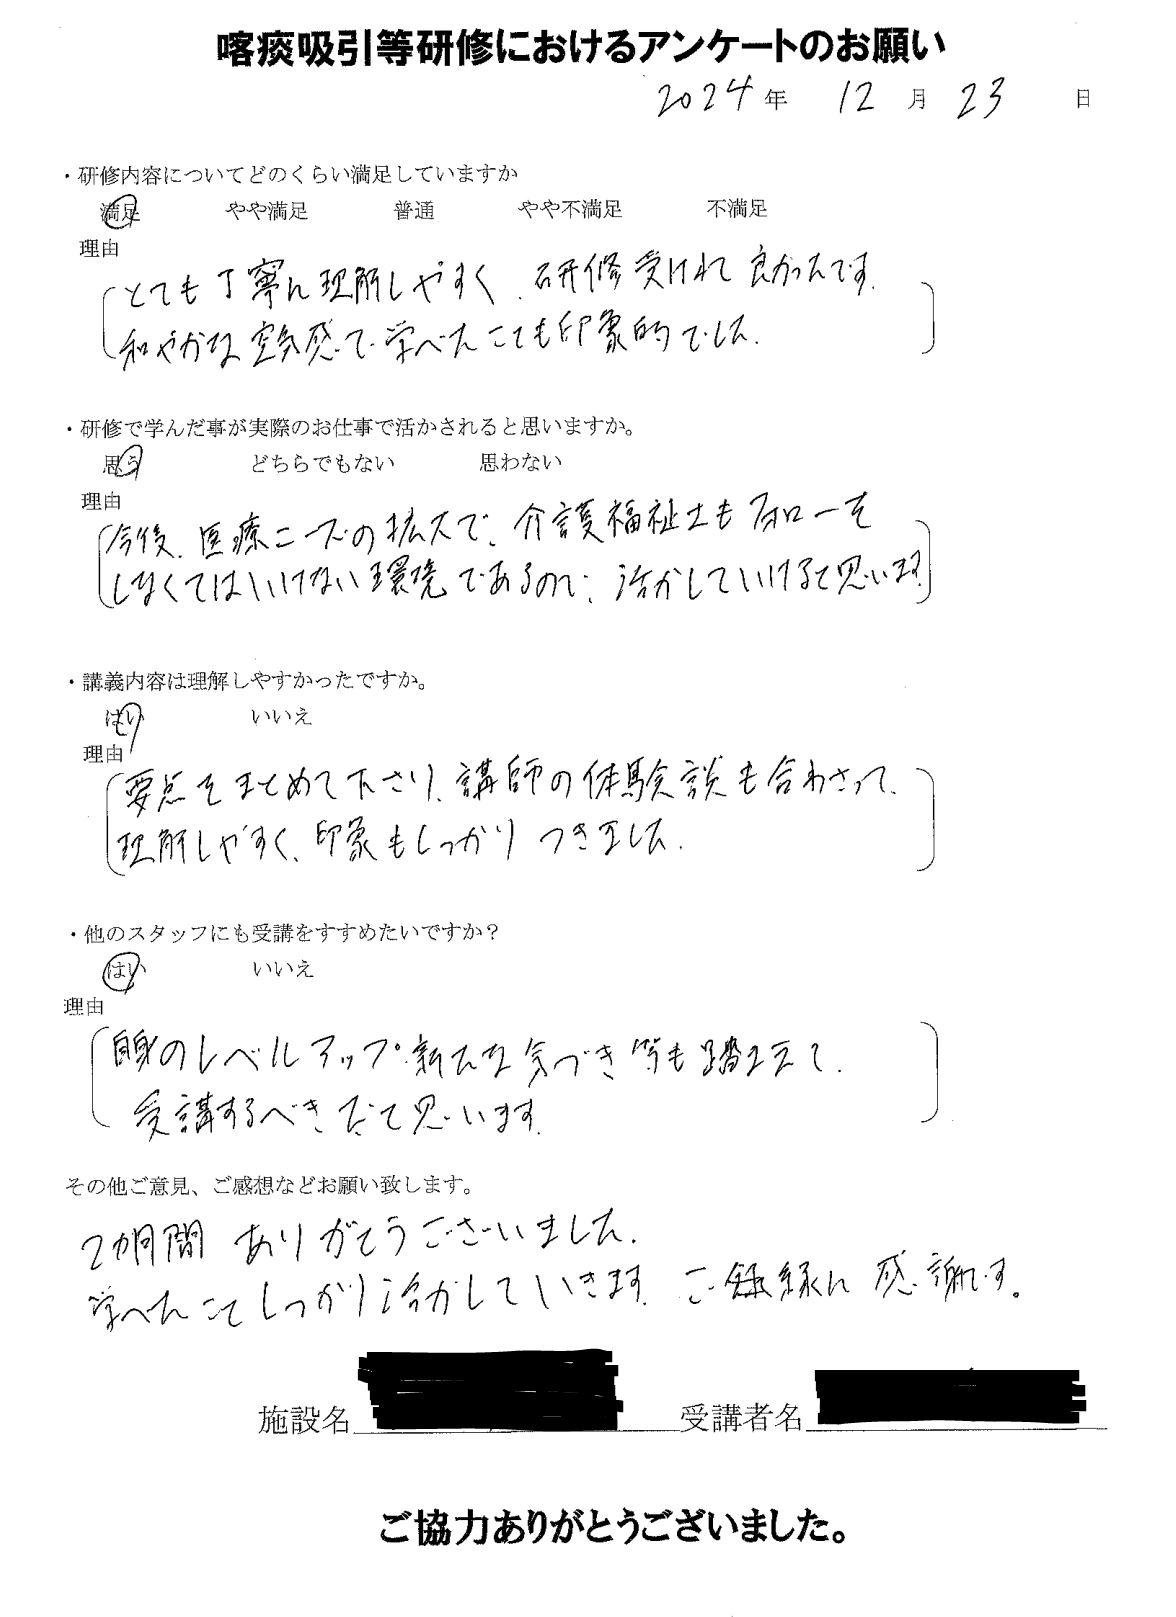 喀痰吸引等研修におけるアンケートのお願い
2024年 12月 23 日
・研修内容についてどのくらい満足していますか
満足 やや満足 普通 やや不満足 不満足
理由
とても丁寧に理解しやすく、研修受けれて良かったです。
和やかな空気感で学べたことも印象的でした。
・研修で学んだ事が実際のお仕事で活かされると思いますか。
思う どちらでもない 思わない
理由
今後、医療ニーズの拡大で、介護福祉士もフォローを
しなくてはいけない環境であるので、活かしていけると思います。
・講義内容は理解しやすかったですか。
はい いいえ
理由
要点をまとめて下さり、講師の体験談も合わさって、
理解しやすく、印象もしっかりつきました。
・他のスタッフにも受講をすすめたいですか？
はい いいえ
理由
自身のレベルアップ・新たな気づき等も踏まえて、
受講するべきだと思います。
その他ご意見、ご感想などお願い致します。
2カ月間 ありがとうございました。
学べたことしっかり活かしていきます。ご縁に感謝です。
施設名 受講者名
ご協力ありがとうございました。